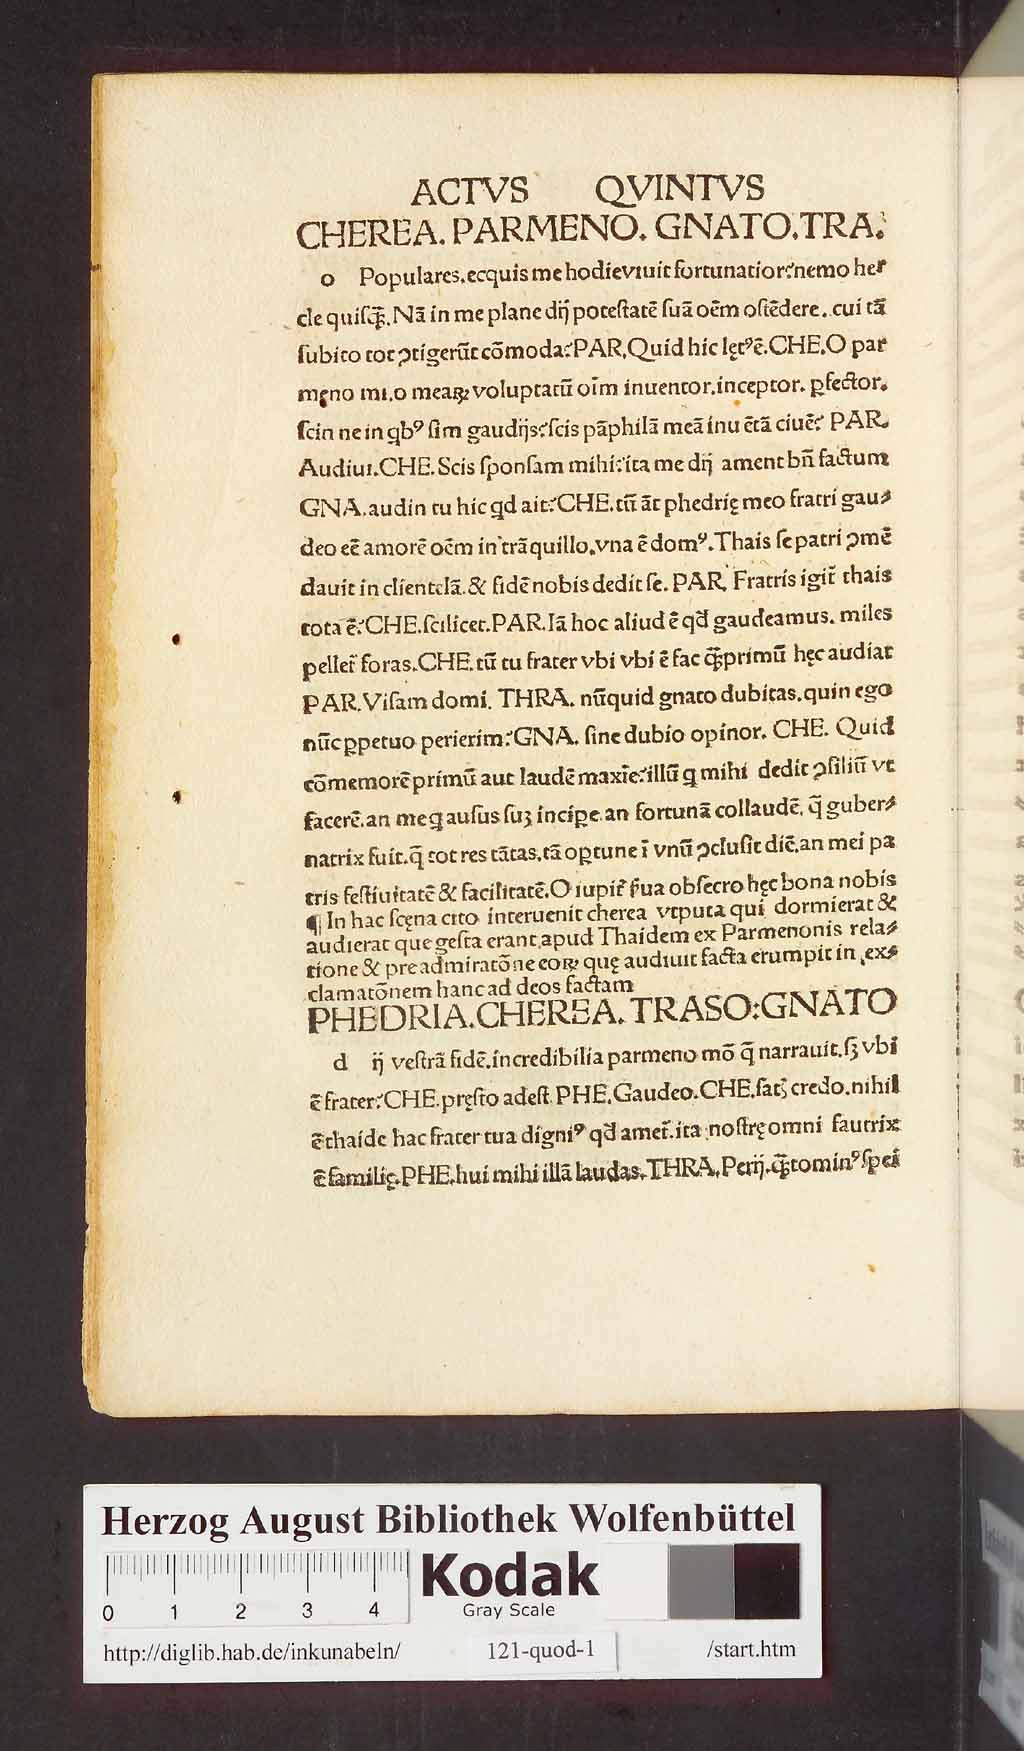 ACTVS QVINTVS
CHEREA. PARMENO. GNATO. TRA.
o Populares. ecquis me hodie viuit fortunatior? nemo her
cle quisꝗ̃. Nā in me plane dij potestatē suā oēm ostēdere. cui tā
subito tot ↄtigerūt cōmoda? PAR. Quid hic lęt⁹ ē. CHE. O par
meno mi. o meaꝝ voluptatū oīm inuentor. inceptor. ꝑfector.
scin ne in qb⁹ sim gaudijs? scis pāphilā meā inuētā ciuē? PAR.
Audiui. CHE. Scis sponsam mihi? ita me dij ament bñ factum
GNA. audin tu hic qd ait? CHE. tū āt phedrię meo fratri gau⸗
deo eē amorē oēm in trāquillo. vna ē dom⁹. Thais se patri ↄmē
dauit in clientelā. & fidē nobis dedit se. PAR. Fratris igit̃ thais
tota ē? CHE. scilicet. PAR. Iā hoc aliud ē qđ gaudeamus. miles
pellet̃ foras. CHE. tū tu frater vbi vbi ē fac ꝗ̃primū hęc audiat
PAR. Visam domi. THRA. nūquid gnato dubitas. quin ego
nūc ꝑpetuo perierim? GNA. sine dubio opinor. CHE. Quid
cōmemorē primū aut laudē maxīe? illū q mihi dedit ↄsiliū vt
facerē. an me q ausus suꝫ incipe. an fortunā collaudē. q̄ guber⸗
natrix fuit. q̄ tot res tātas. tā oꝑtune ī vnū ↄclusit diē. an mei pa
tris festiuitatē & facilitatē. O iupit̃ s̃ua obsecro hęc bona nobis
¶ In hac scęna cito interuenit cherea vtputa qui dormierat &
audierat que gesta erant apud Thaidem ex Parmenonis rela⸗
tione & pre admiratōne eoꝝ quę audiuit facta erumpit in ex⸗
clamatōnem hanc ad deos factam
PHEDRIA. CHEREA. TRASO: GNATO
d ij vestrā fidē. incredibilia parmeno mō q̄ narrauit. sꝫ vbi
ē frater? CHE. pręsto adest. PHE. Gaudeo. CHE. satꝫ credo. nihil
ē thaide hac frater tua digni⁹ qđ amet̃. ita nostrę omni fautrix
ē familię. PHE. hui mihi illā laudas. THRA. Perij. ꝗ̃to min⁹ spei
Herzog August Bibliothek Wolfenbüttel
0 1 2 3 4
Kodak
Gray Scale
http://diglib.hab.de/inkunabeln/ 121-quod-1 /start.htm